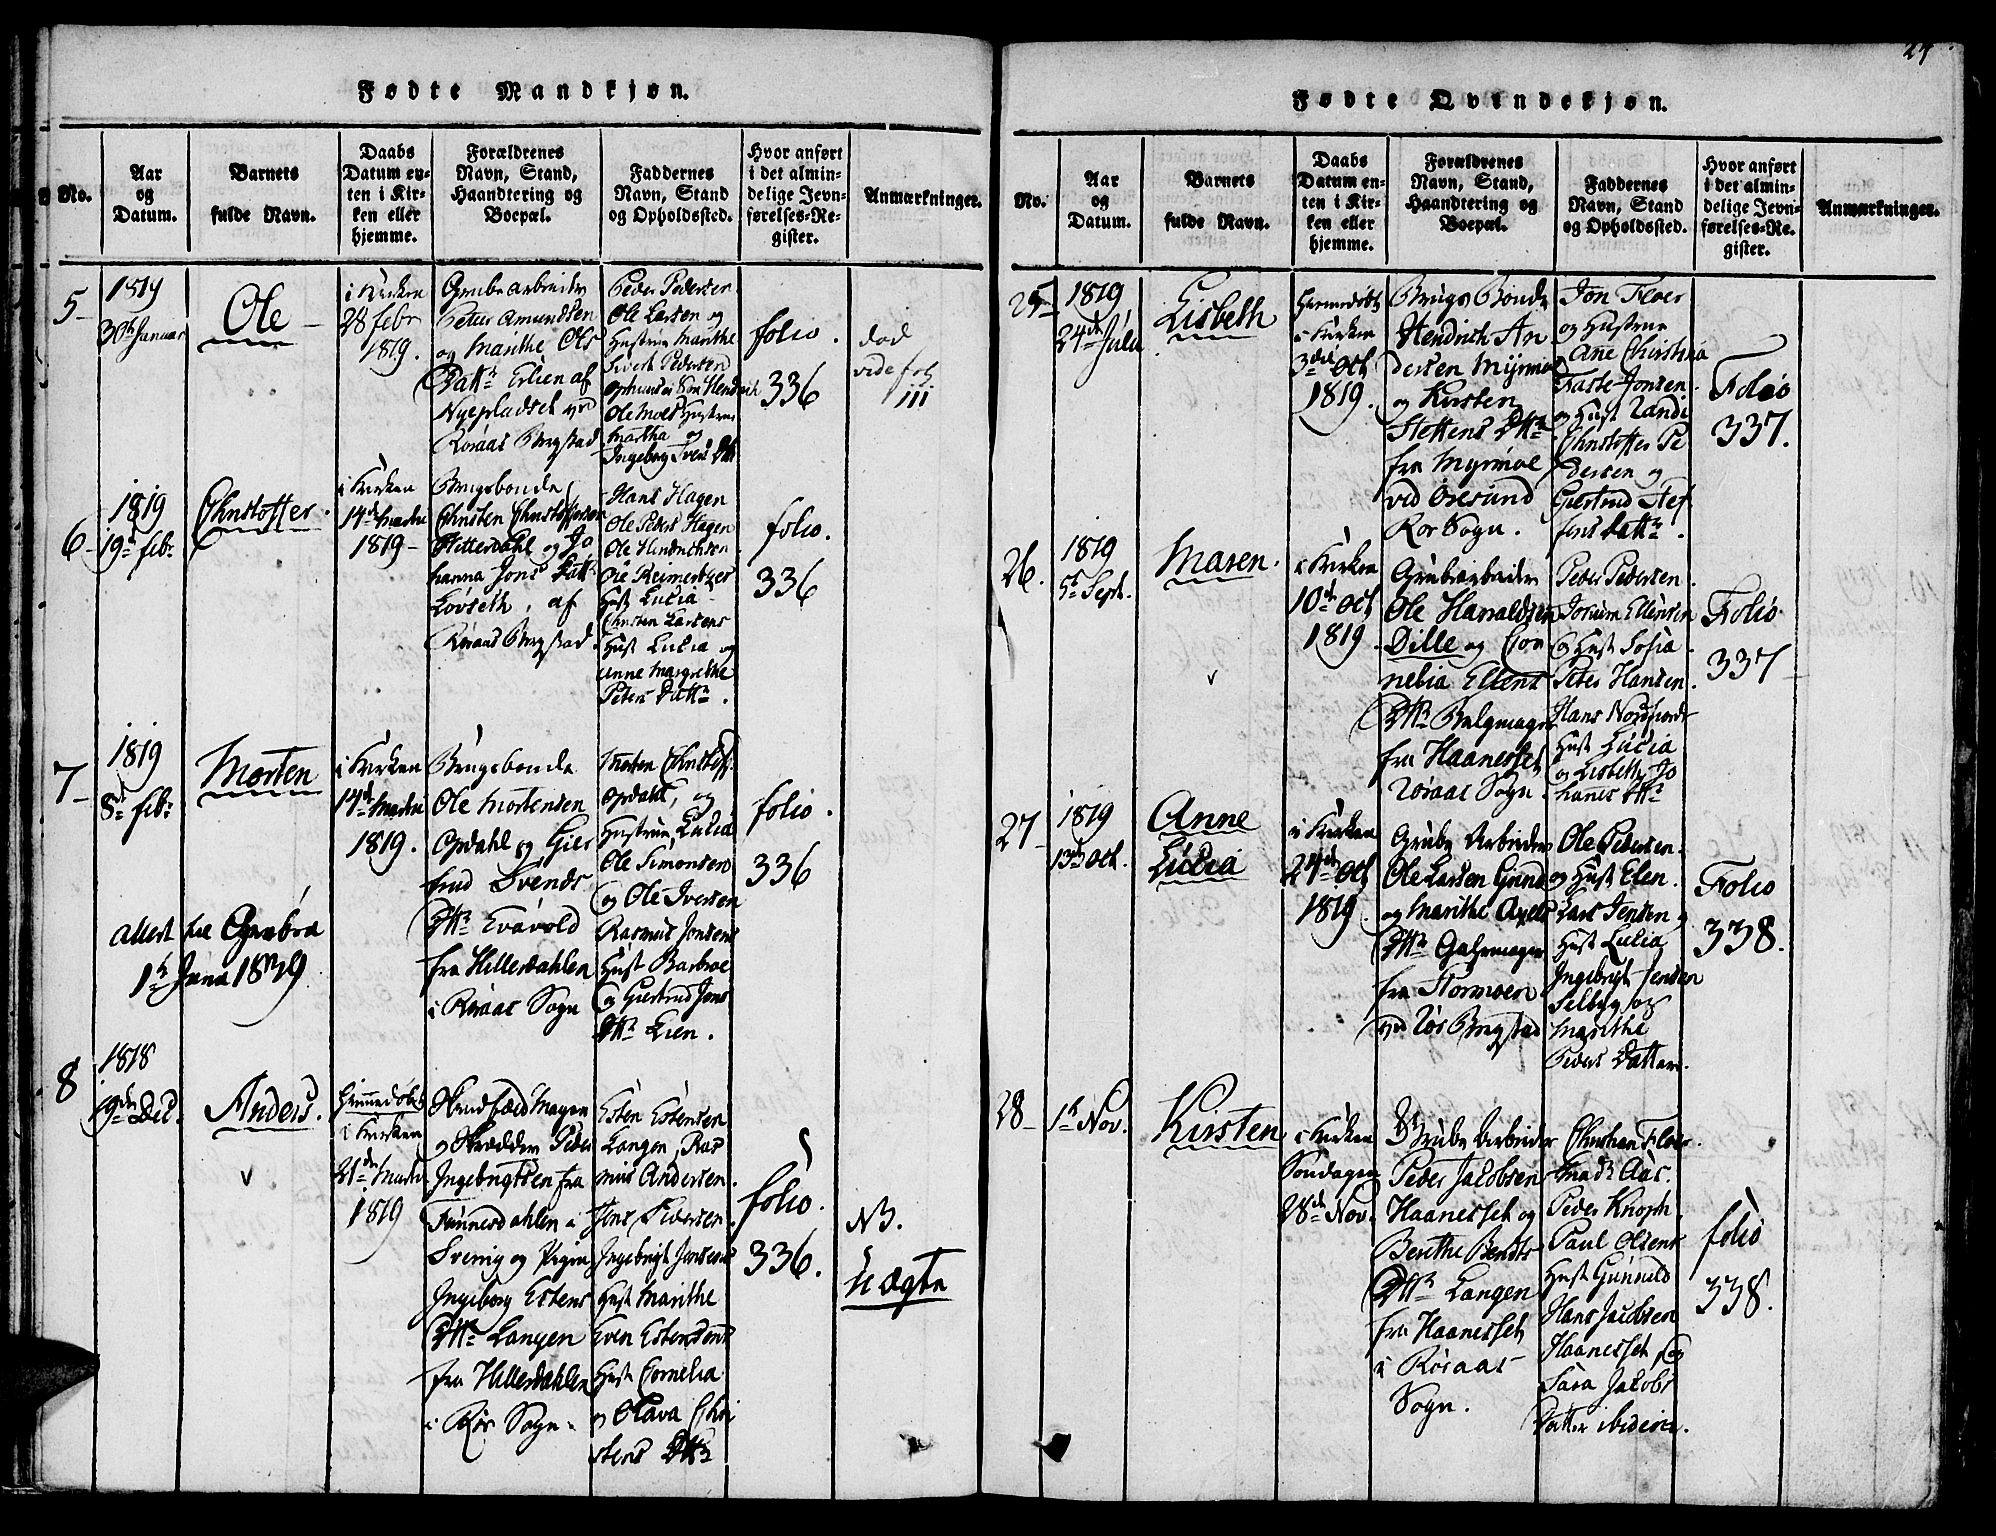 Fødte Mandkjøn.
No.
Aar
og
Datum.
Barnets
fulde Navn.
Daabs
Datum en-
ten i Kir-
ken eller
hjemme.
Forældrenes
Navn, Stand,
Haandtering og
Boepæl.
Faddernes
Navn, Stand
og Opholdssted.
Hvor anført
i det almin-
delige Jevn-
førelses-Re-
gister.
Anmærkninger.
5
1819
30te Januar
Ole
i Kirken
28 febr
1819.
Grubearbeider
Peter Amundsen
og Marithe Ols
Dattr Erlien af
Nyepladset ved
Røraas Bergstad
Peder Pedersen
Ole Larsen og
Hustrue Marithe
Sivert Pedersen
Ole Moes Hustrue
Martha og
Ingeborg Svens Dtt
folio.
336
død
vide fol
111
6
1819
19de febr.
Christoffer.
i Kirken
14de Martii
1819
Brugsbonde
Christen Christoffersen
Hitterdahl og Jo
hanna Jons Dattr
Løvseth, af
Røraas Bergstad.
Hans Hagen
Ole Peders Hagen
Ole Hindrichsen
Ole
Hust Lucia
Christen Larsens
Hust Lucia og
Anne Margrethe
Peters Dattr.
folio.
336
7
1819
8de febr
Morten
i Kirken
14de Martii
1819.
Brugsbonde
Ole Mortensen
Opdahl og Gier
trud Svends
Dttr Evavold
fra Hitterdahlen
i Røraas Sogn
Morten Christoff.
Opdahl, og
Hustrue Lucia
Ole Simonsen
og Ole Iversen
Rasmus Jonsens
Hust Barbroe
og Giertrud Jons
Dttr Lien.
folio.
336
Attest
1ste 1839
8
1818
19de Dec.
Anders.
Hiemmedøbt
i Kirken
21de Martii
1819
og Skrædder Peder
Ingebrigtsen fra
Tønnesdahlen i
og Pigen
Ingeborg Estens
Dttr Langen
fra Hitterdahlen
i Rør Sogn.
Esten Estensen
Langen, Ras
mus Andersen.
Jens Pedersen.
Ingebrigt Jensens
Hust Marithe
Even Estensens
Hust Cornelia
og Olava Chri
stens Dttr
folio.
336.
NB.
Uægte
24
Fødte Qvindekjøn.
No.
Aar
og
Datum.
Barnets
fulde Navn.
Daabs
Datum en-
ten i Kir-
ken eller
hjemme.
Forældrenes
Navn, Stand,
Haandtering og
Boepæl.
Faddernes
Navn, Stand
og Opholdssted.
Hvor anført
i det almin-
delige Jevn-
førelses-Re-
gister.
Anmærkninger.
25
1819
24de Julii
Lisbeth
Hiemmedøbt
i Kirken
3die Oct
1819.
Brugs Bonde
Hendrich An
dersen Myrmoe
og Kirsten
Steffens Dttr
fra Myrmoe
ved Øresund
Rør Sogn.
Jon Floer
og Hustrue
Anne Christina
Faste Jonsen.
og Hust Randi
Christoffer Pe
dersen og
Giertrud Stef
fens Dattr.
Folio
337.
26.
1819
5te Septr.
Maren.
i Kirken
10de Oct
1819
Grubearbeider
Ole Haraldsen
Dille og Cor
nelia Ellens
Dttr Belgmager
fra Haanesset
Røraas Sogn.
Peder Pedersen.
Ellensen
og Hust Sofia
Peter Hansen.
Hans
Hust Lucia
og Lisbeth Jo
hannes Dttr
Folio
337
27
1819
13de Oct.
Anne
Lucia
i Kirken
24de Oct
1819.
Grube Arbeider
Ole Larsen Grind
og Marithe Axels
Dttr Galgemager
fra Stormoen
ved Rør Bergstad
Ole Pedersen.
og Hust Elen.
Lars Jensen og
Hust Lucia
Ingebrigt Jensen
Selboy og
Marithe
Peders Datter.
Folio
338.
28
1te Nov.
Kirsten
i Kirken
Søndagen
28de Nov.
Grube Arbeider
Peder Jacobsen
Haanesset og
Berithe Bendts
Dttr Langen
fra Haanesset
i Røraas
Sogn.
Christian Floer
Madr Aas.
Peder Knoph.
Paul Olsens
Hust Gunneld
Hans Jacobsen
Haanesset, og
Sara Jacobs
Datter ibidem.
folio
338.